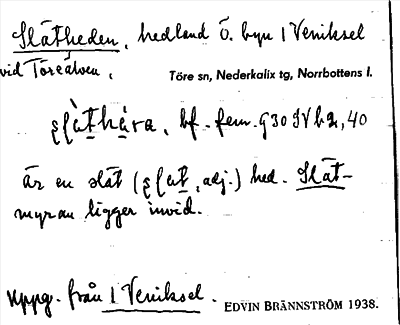 Slätheden, hedland Ö. byn 1 Veniksel
vid Töreälven.
Töre sn, Nederkalix tg, Norrbottens l.
bf. fem. G30 SV h2, 40
är en slät (adj.) hed. Slät-
myran ligger invid.
Uppg. från 1 Veniksel.
EDVIN BRÄNNSTRÖM 1938.